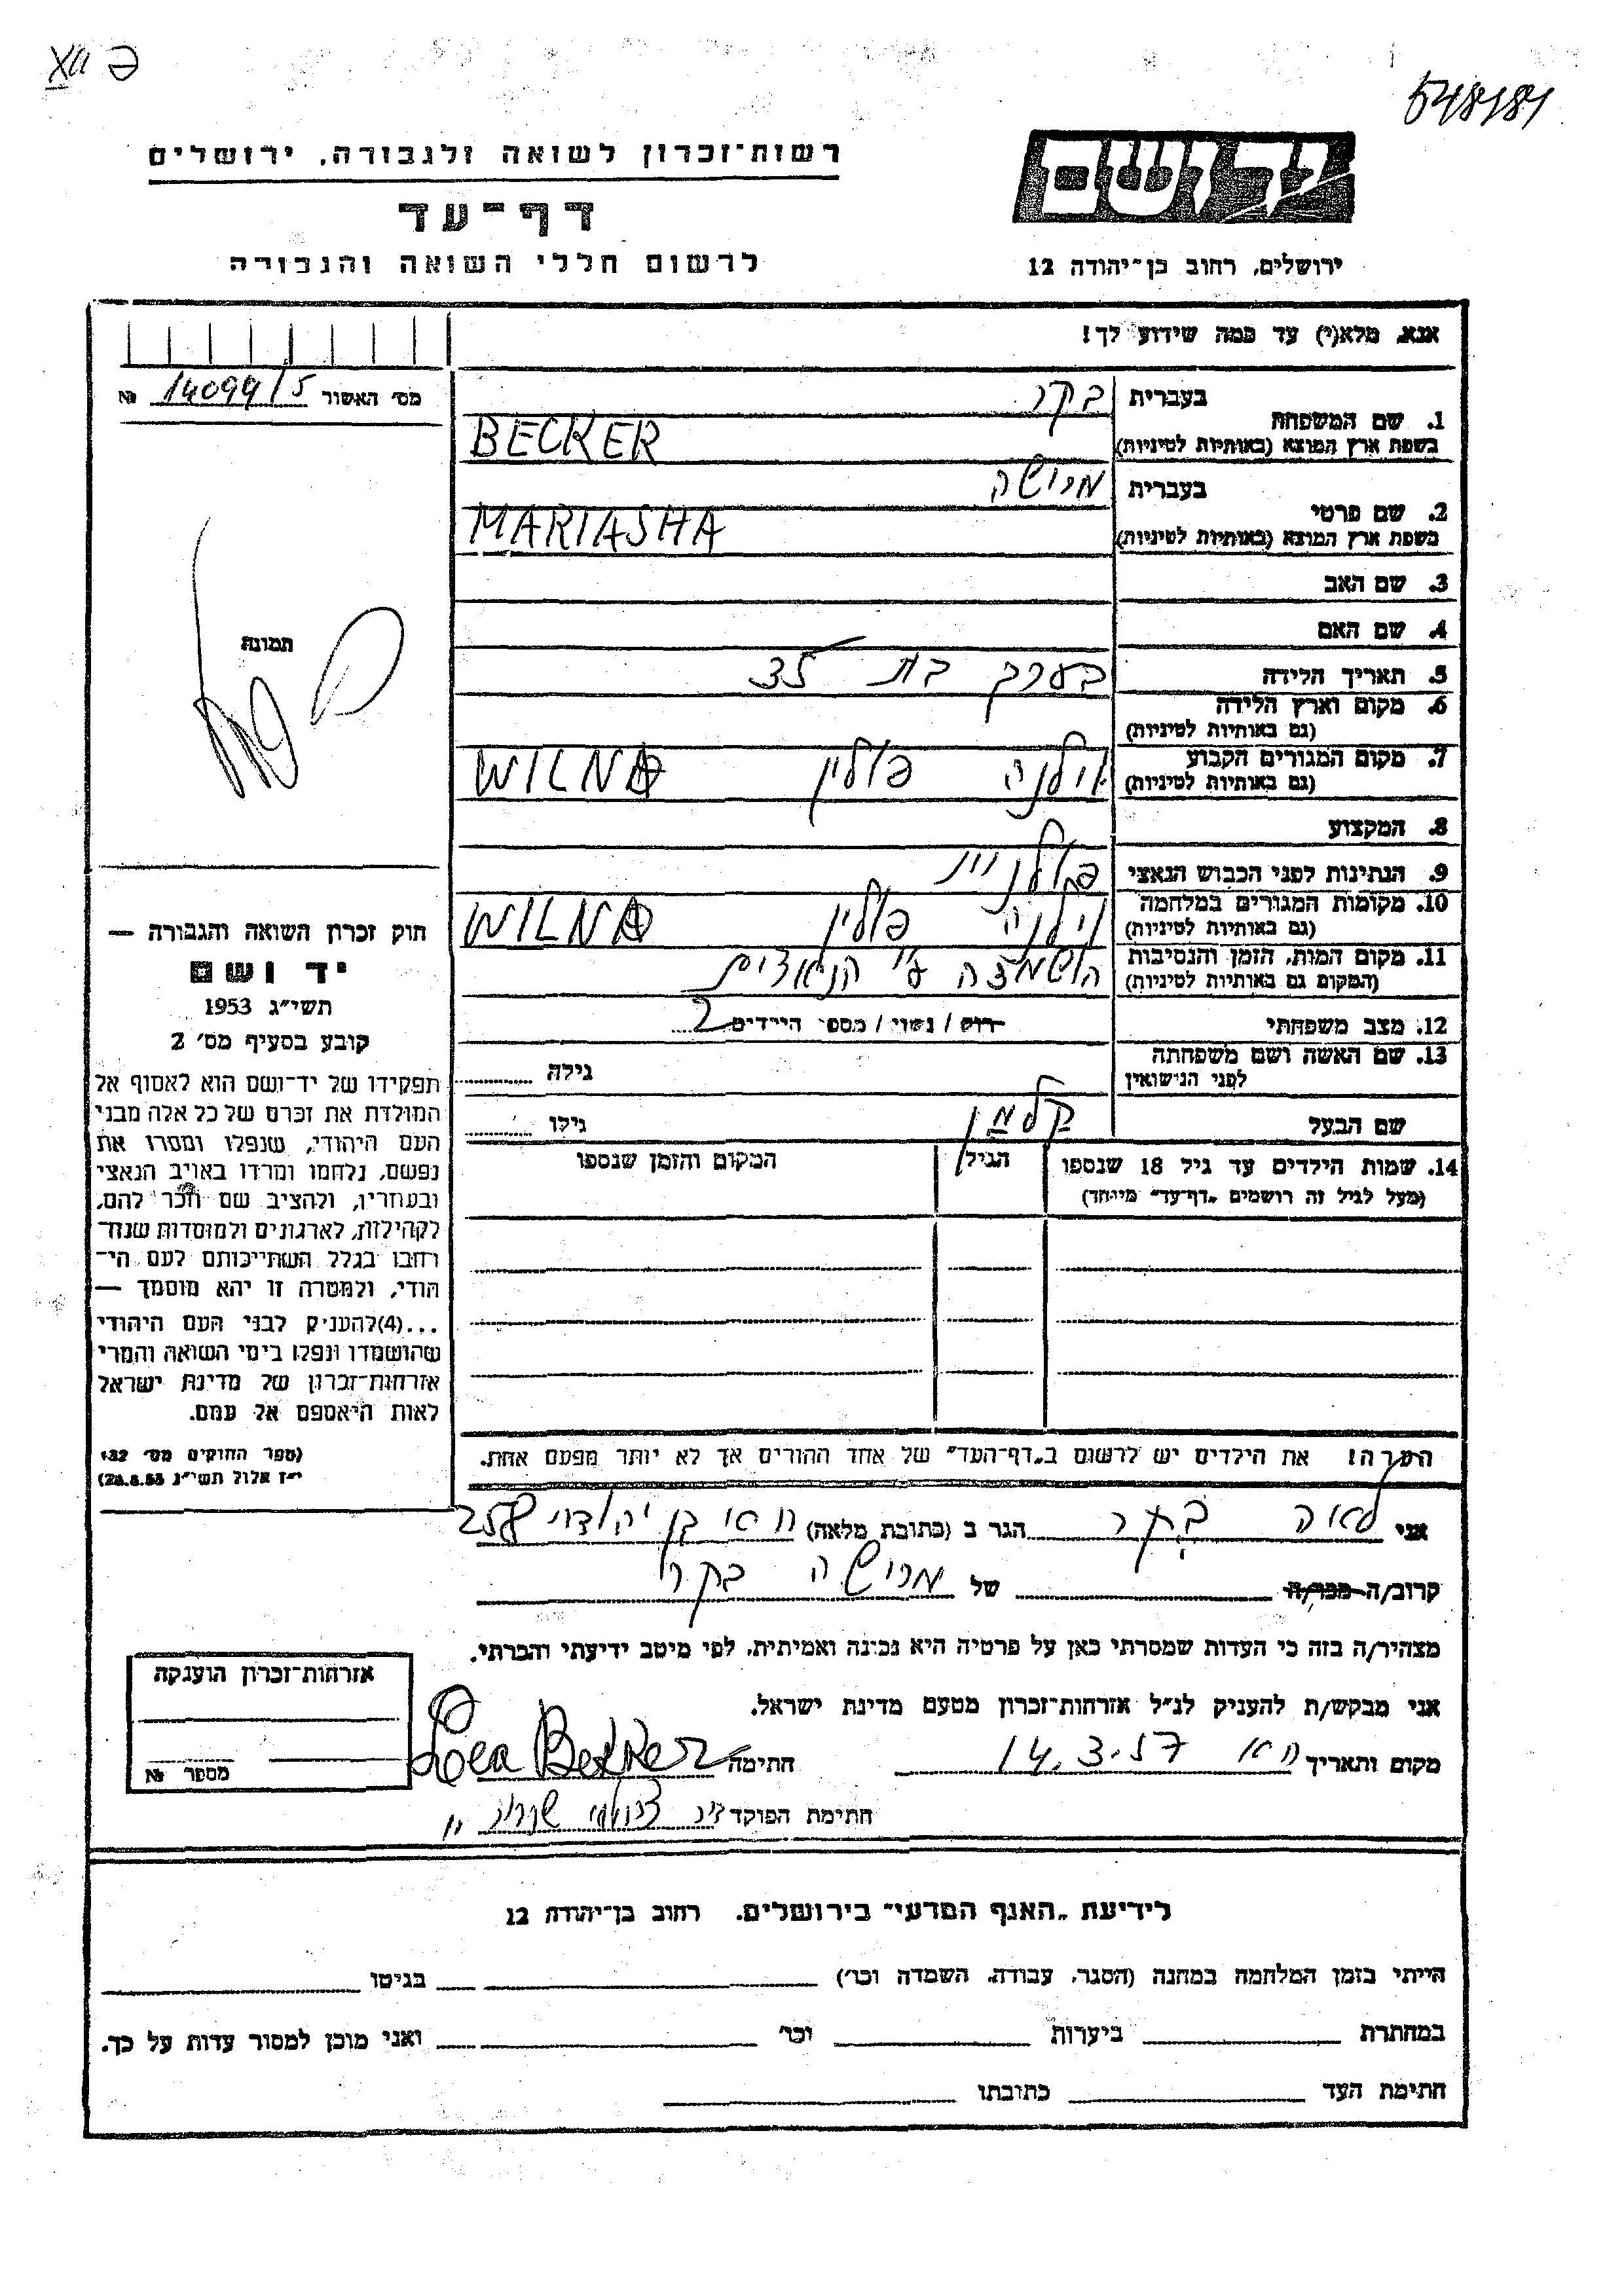 548/81
רשות־זכרון לשואה ולגבורה, ירושלים
דף־עד
לרשום חללי השואה והגבורה
יד ושם
ירושלים, רחוב בן־יהודה 12
אנא, מלא(י) עד כמה שידוע לך!
מס׳ האשור 14099/5 №
תמונה
1. שם המשפחה
בעברית בקר
בשפת ארץ המוצא (באותיות לטיניות) BECKER
2. שם פרטי
בעברית מרישה
בשפת ארץ המוצא (באותיות לטיניות) MARIASHA
3. שם האב
4. שם האם
5. תאריך הלידה בערך בת 35
6. מקום וארץ הלידה
(גם באותיות לטיניות)
7. מקום המגורים הקבוע וילנה פולין WILNA
(גם באותיות לטיניות)
8. המקצוע
9. הנתינות לפני הכבוש הנאצי פולנית
10. מקומות המגורים במלחמה וילנה פולין WILNA
(גם באותיות לטיניות)
11. מקום המות, הזמן והנסיבות הושמדה ע״י הנאצים
(המקום גם באותיות לטיניות)
12. מצב משפחתי רווק / נשוי / מספר הילדים 2
13. שם האשה ושם משפחתה
לפני הנישואין
גילה
שם הבעל קלמן גילו
14. שמות הילדים עד גיל 18 שנספו
(מעל לגיל זה רושמים „דף־עד״ מיוחד)
הגיל
המקום והזמן שנספו
הערה! את הילדים יש לרשום ב„דף־העד״ של אחד ההורים אך לא יותר מפעם אחת.
חוק זכרון השואה והגבורה —
יד ושם
תשי״ג 1953
קובע בסעיף מס׳ 2
תפקידו של יד־ושם הוא לאסוף אל
המולדת את זכרם של כל אלה מבני
העם היהודי, שנפלו ומסרו את
נפשם, נלחמו ומרדו באויב הנאצי
ובעוזריו, ולהציב שם וזכר להם,
לקהילות, לארגונים ולמוסדות שנח־
רבו בגלל השתייכותם לעם הי־
הודי, ולמטרה זו יהא מוסמך —
...(4)להעניק לבני העם היהודי
שהושמדו ונפלו בימי השואה והמרי
אזרחות־זכרון של מדינת ישראל
לאות היאספם אל עמם.
(ספר החוקים מס׳ 132
י״ז אלול תשי״ג 28.8.53)
אני לאה בקר הגר ב (כתובת מלאה) ת״א בן יהודה 258
קרוב/ה מכר/ה של מרישה בקר
מצהיר/ה בזה כי העדות שמסרתי כאן על פרטיה היא נכונה ואמיתית, לפי מיטב ידיעתי והכרתי.
אני מבקש/ת להעניק לנ״ל אזרחות־זכרון מטעם מדינת ישראל.
מקום ותאריך ת״א 14.3.57 חתימה Lea Bekker
חתימת הפוקד
אזרחות־זכרון הוענקה
מספר №
לידיעת „האגף המדעי״ בירושלים. רחוב בן־יהודה 12
הייתי בזמן המלחמה במחנה (הסגר, עבודה, השמדה וכו׳) בגיטו
במחתרת ביערות וכו׳ ואני מוכן למסור עדות על כך.
חתימת העד כתובתו